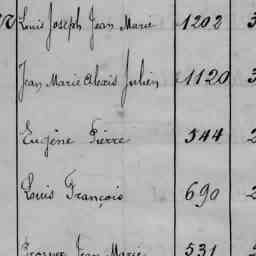 Louis Joseph Jean Marie 1202 3
Jean Marie Alexis Julien 1120 3
Eugène Pierre 544 2
Louis François 690 2
Prosper Jean Marie 531